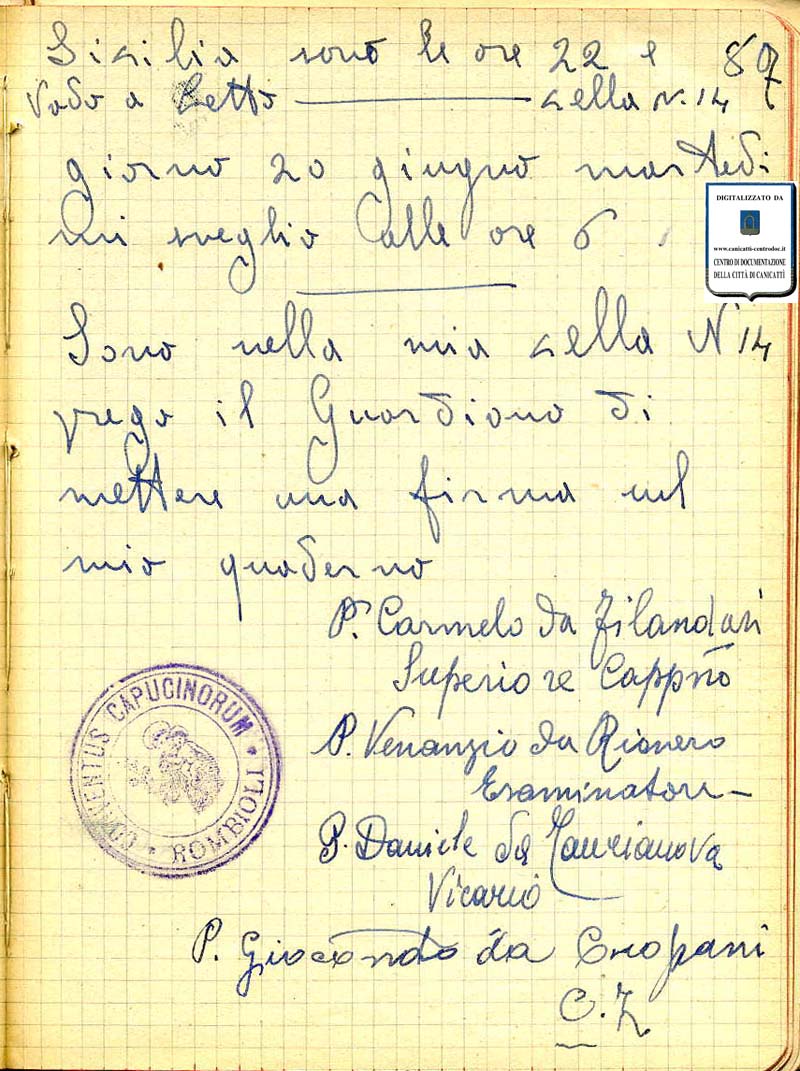 Sicilia sono le ore 22 e 87
Vado a Letto — cella N. 14
giorno 20 giugno martedi
mi sveglio alle ore 6
Sono nella mia cella N 14
prego il Guardiano di
mettere una firma nel
mio quaderno
P. Carmelo da Filandari
Superiore Cappno
P. Venanzio da Rionero
Esaminatore
P. Daniele da Taurianova
Vicario
P. Giocondo da Cropani
C. Z
CONVENTUS CAPUCINORUM • ROMBIOLI •
DIGITALIZZATO DA
www.canicatti-centrodoc.it
CENTRO DI DOCUMENTAZIONE
DELLA CITTÀ DI CANICATTÌ